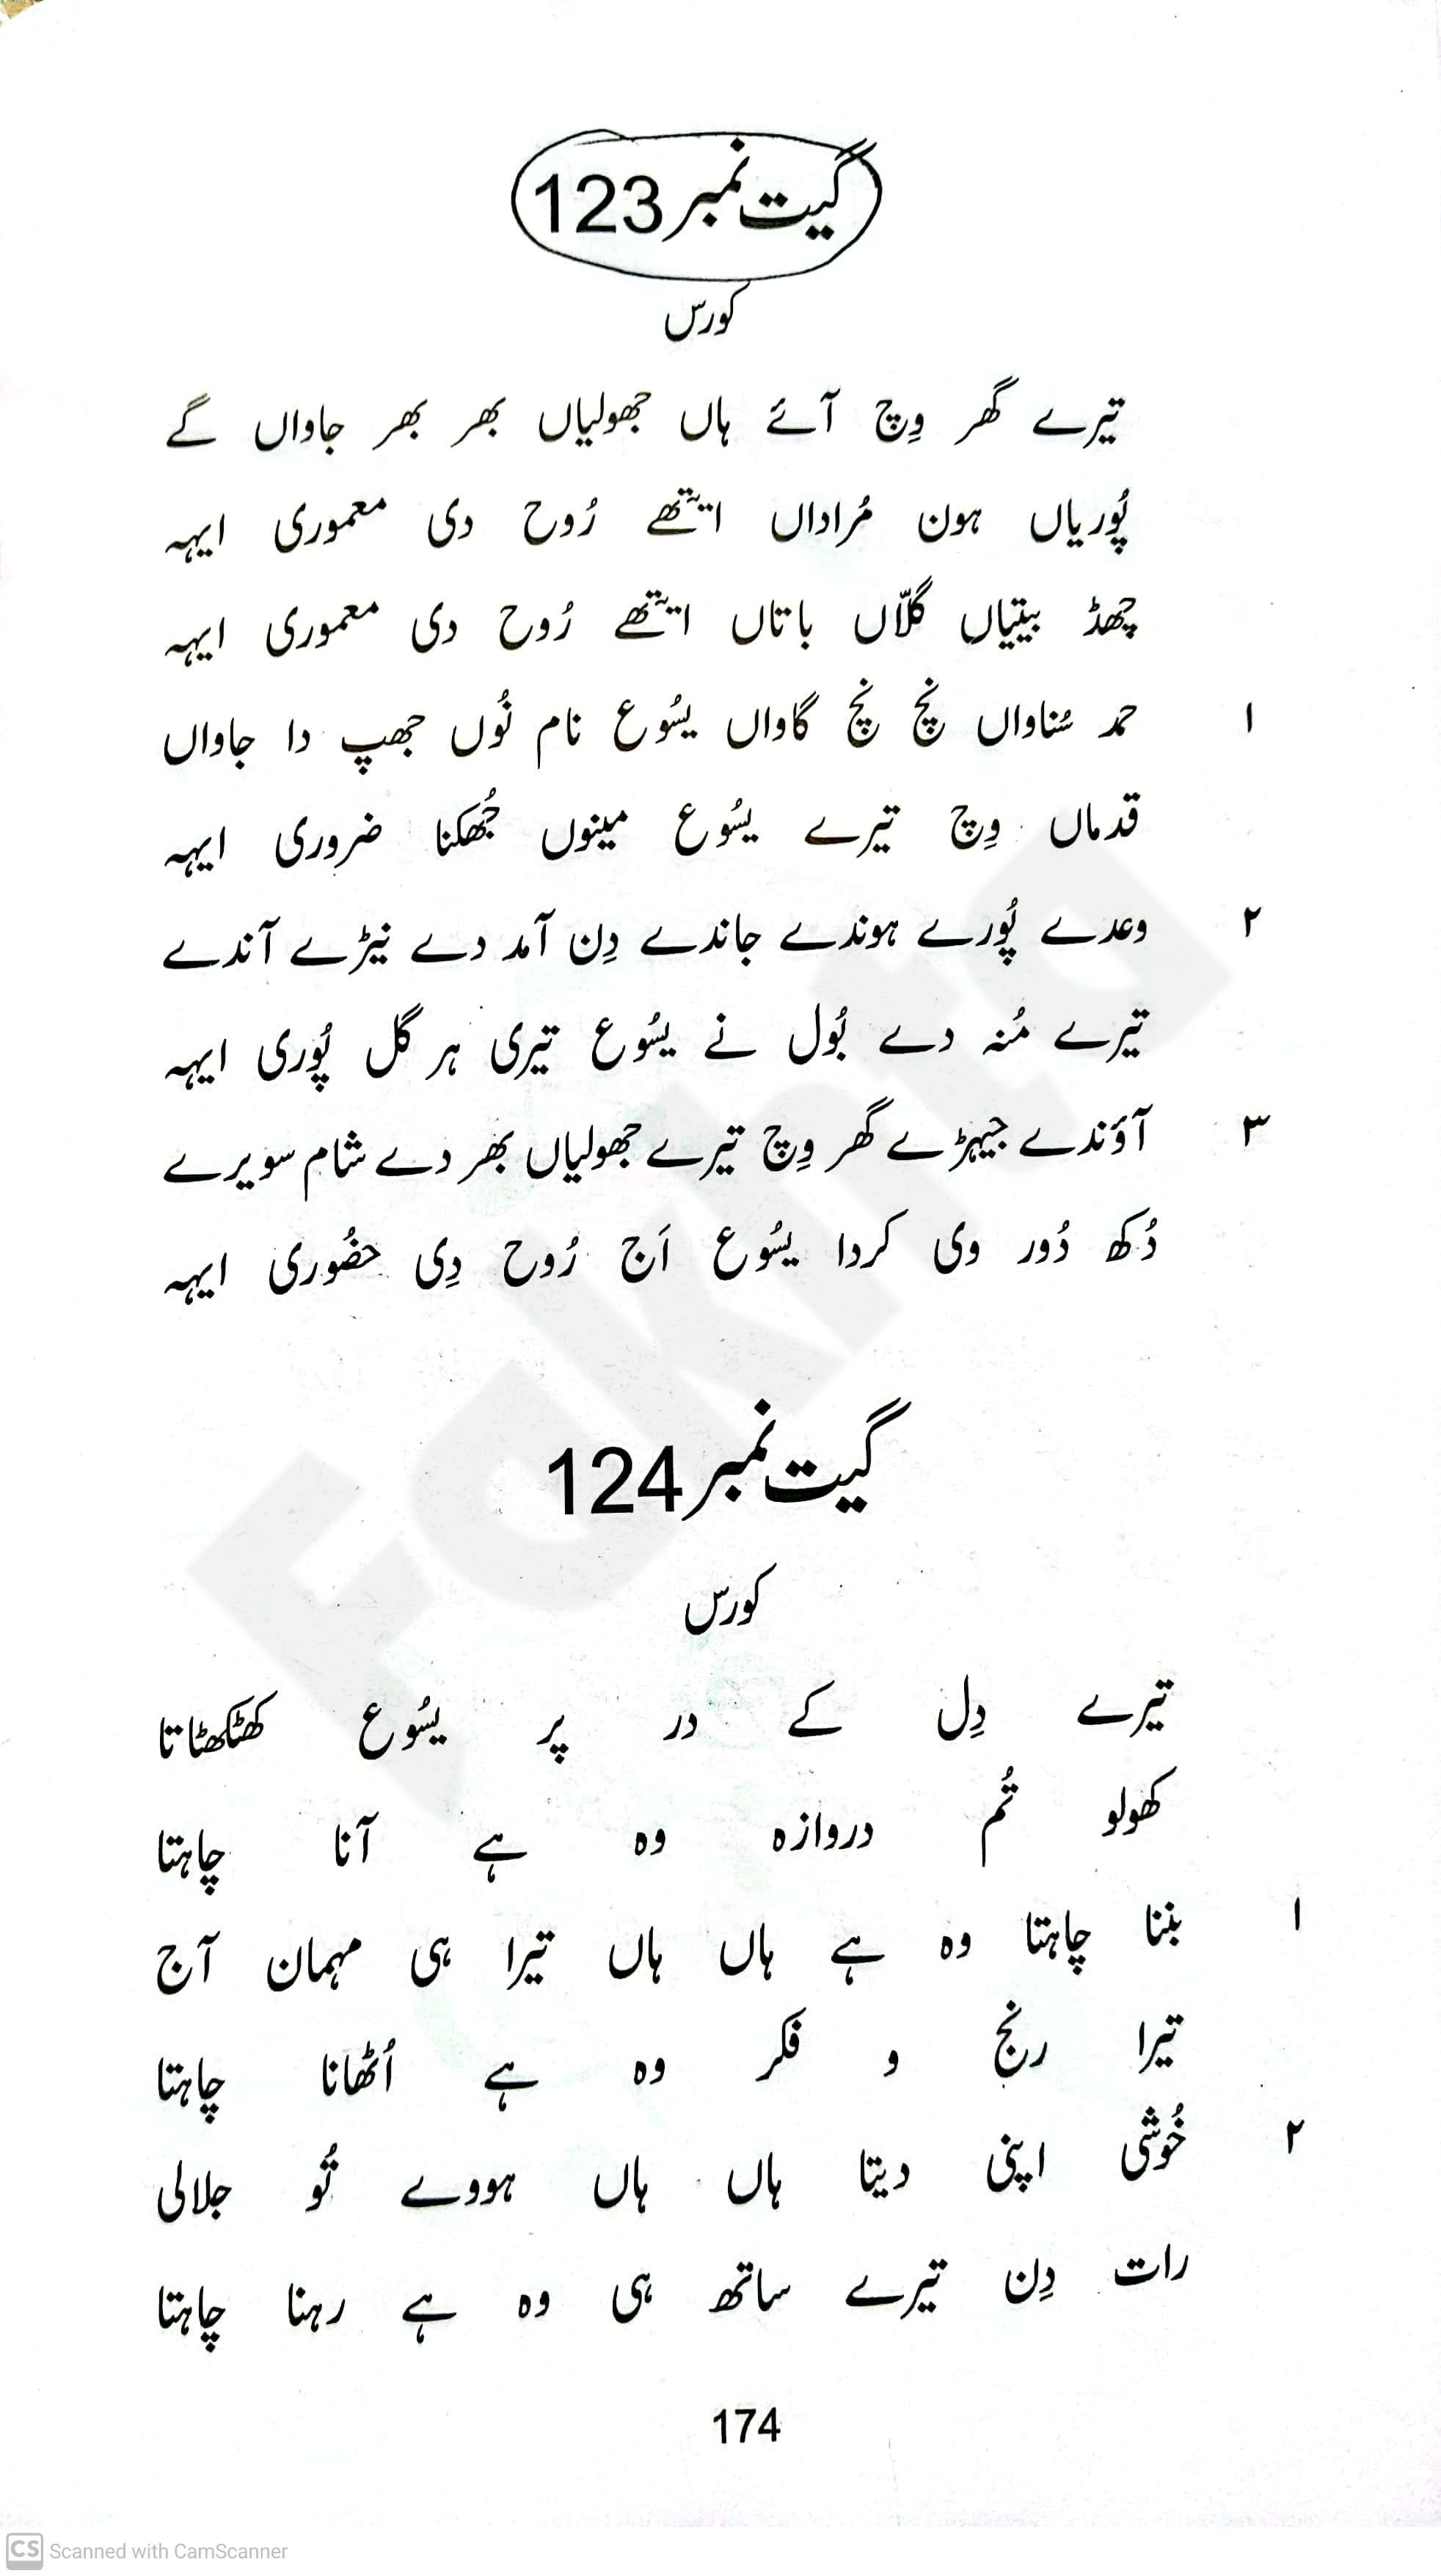 گیت نمبر 123
کورس
تیرے گھر وِچ آئے ہاں جھولیاں بھر بھر جاواں گے
پُوریاں ہون مُراداں ایتھے رُوح دی معموری ایہہ
چھڈ بیتیاں گلّاں باتاں ایتھے رُوح دی معموری ایہہ
۱ حمد سُناواں نچ نچ گاواں یسُوع نام نُوں جھپ دا جاواں
قدماں وِچ تیرے یسُوع مینوں جُھکنا ضروری ایہہ
۲ وعدے پُورے ہوندے جاندے دِن آمد دے نیڑے آندے
تیرے مُنہ دے بُول نے یسُوع تیری ہر گل پُوری ایہہ
۳ آؤندے جیہڑے گھر وِچ تیرے جھولیاں بھر دے شام سویرے
دُکھ دُور وی کردا یسُوع اَج رُوح دِی حضُوری ایہہ
گیت نمبر 124
کورس
تیرے دِل کے در پر یسُوع کھٹکھٹاتا
کھولو تُم دروازہ وہ ہے آنا چاہتا
۱ بننا چاہتا وہ ہے ہاں ہاں تیرا ہی مہمان آج
تیرا رنج و فکر وہ ہے اُٹھانا چاہتا
۲ خُوشی اپنی دیتا ہاں ہاں ہووے تُو جلالی
رات دِن تیرے ساتھ ہی وہ ہے رہنا چاہتا
174
Fakhta
CS Scanned with CamScanner